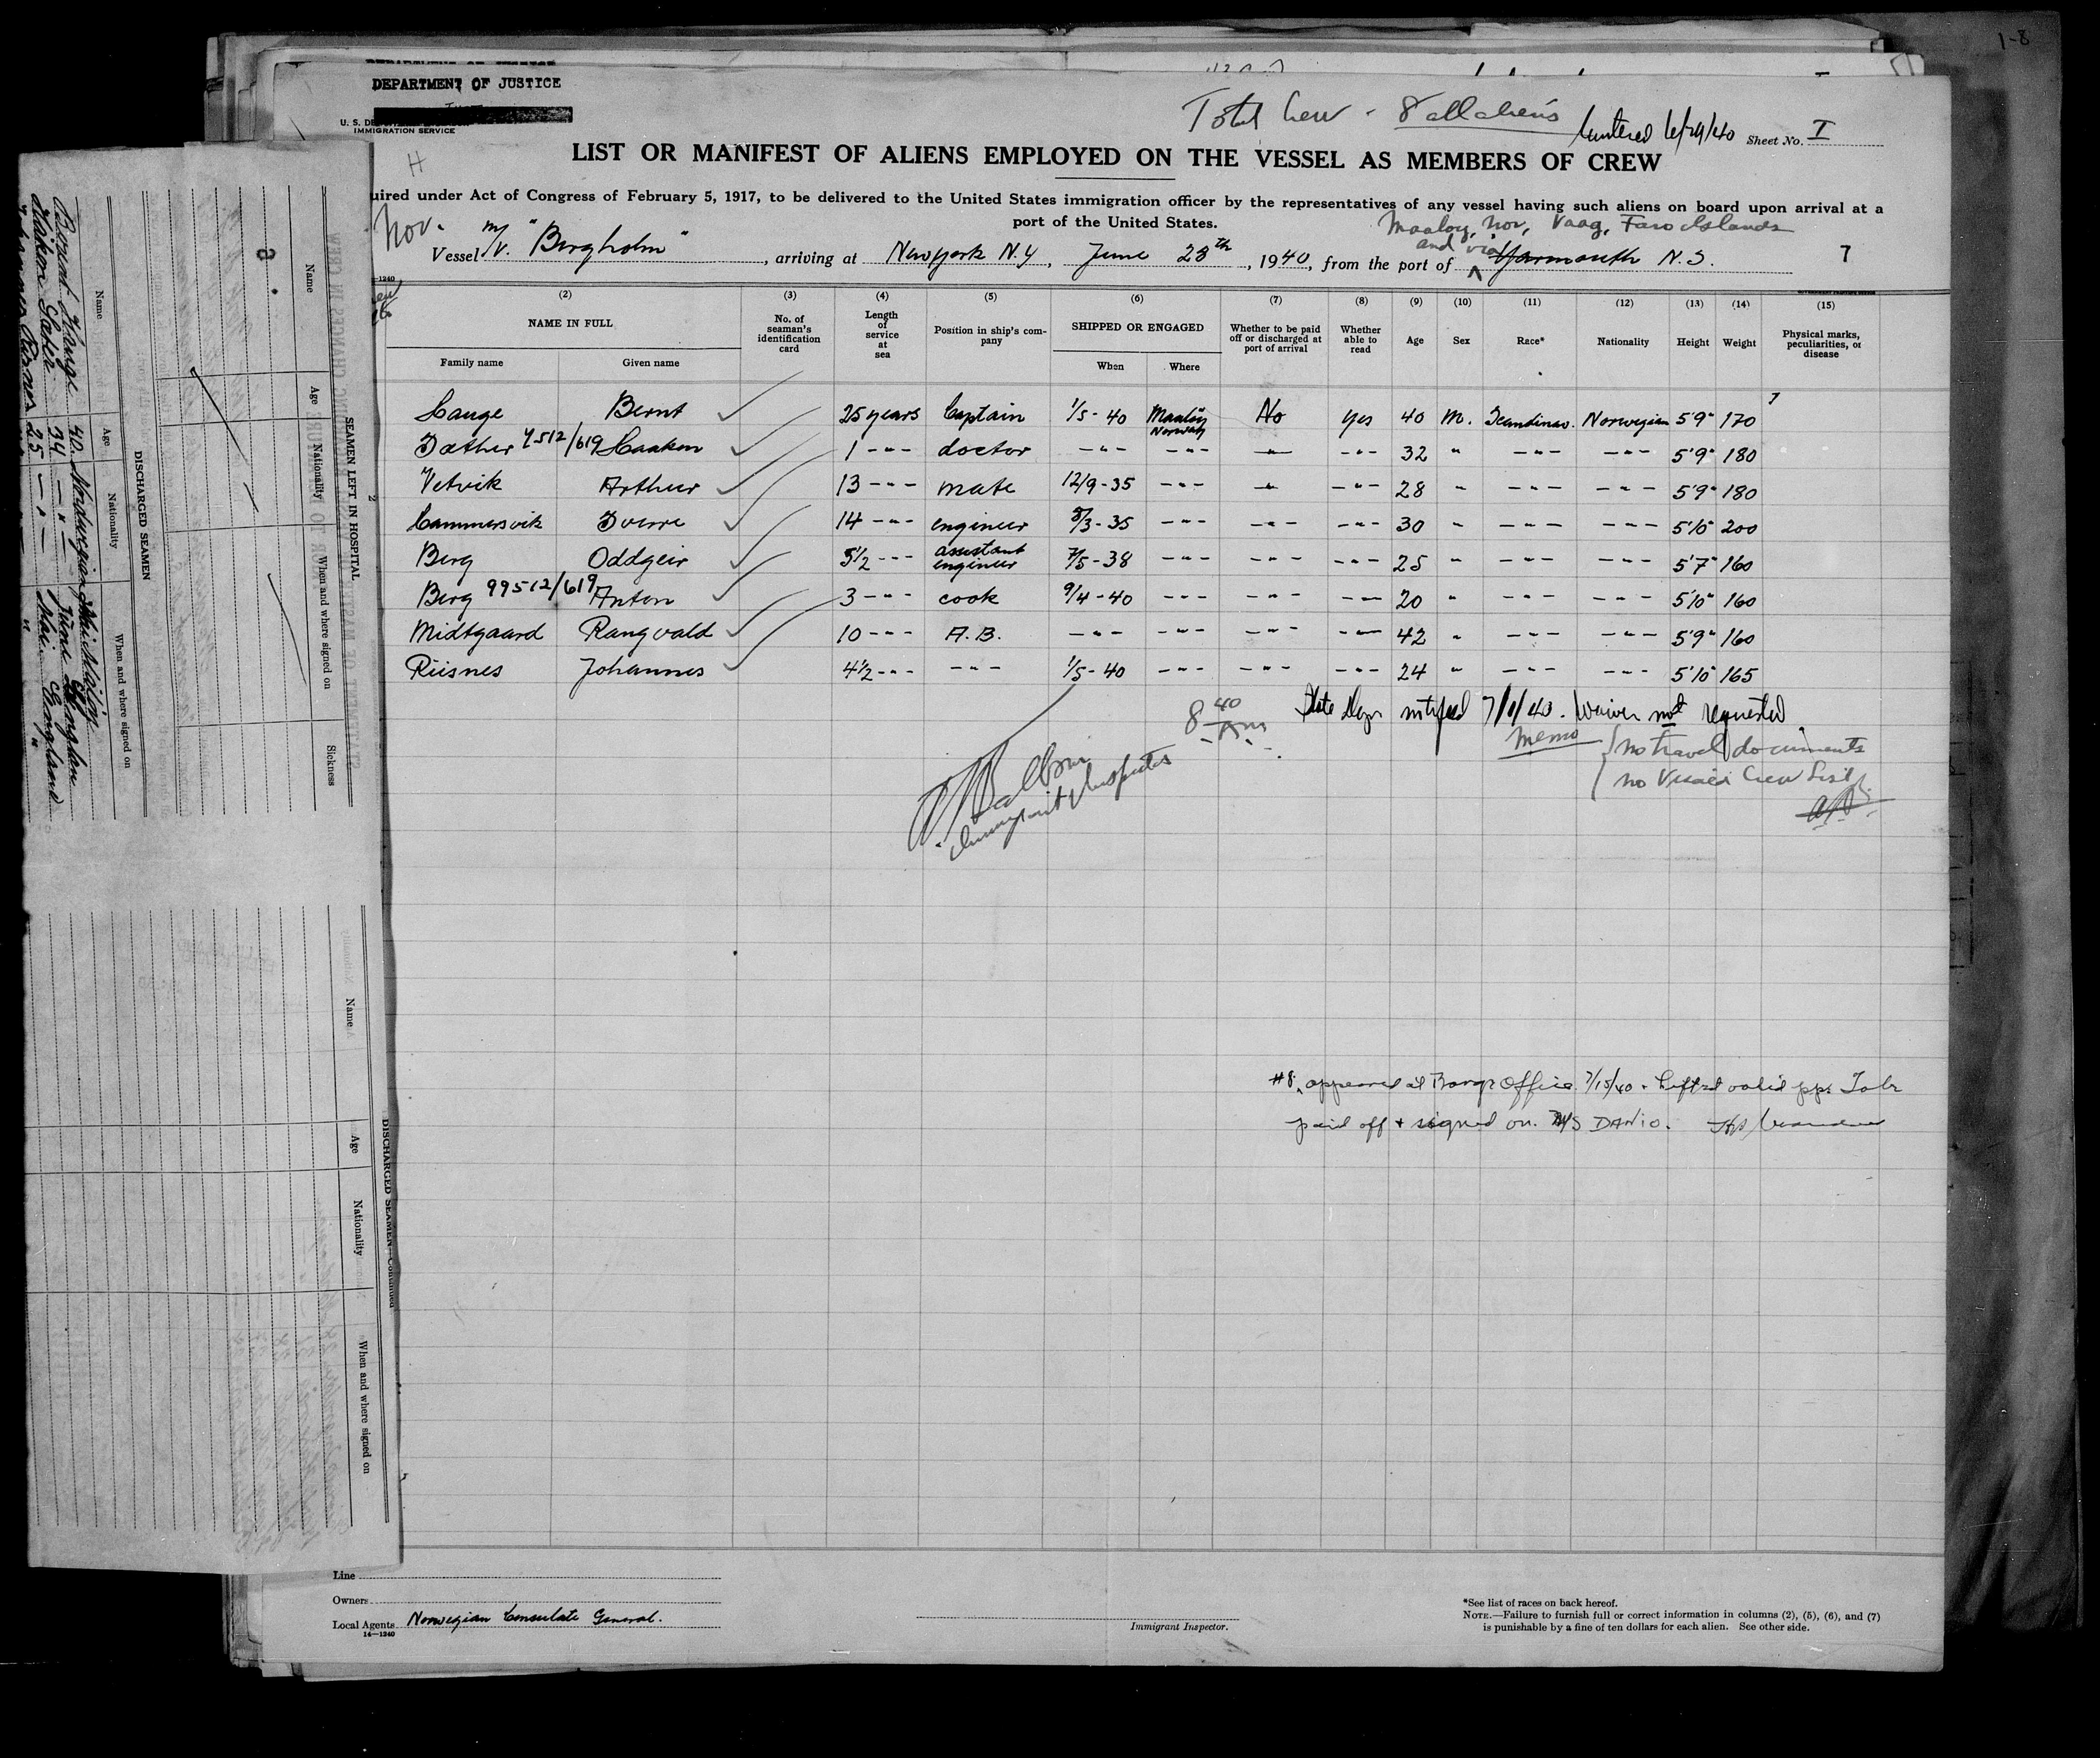 1-8
DEPARTMENT OF JUSTICE
IMMIGRATION SERVICE
Total Crew - 8 all aliens
6/29/40 Sheet No. I
H
LIST OR MANIFEST OF ALIENS EMPLOYED ON THE VESSEL AS MEMBERS OF CREW
uired under Act of Congress of February 5, 1917, to be delivered to the United States immigration officer by the representatives of any vessel having such aliens on board upon arrival at a
port of the United States.
Maaloy, Nor, Vaag, Faro Islands
Nor. and via
Vessel M/V. "Borgholm", arriving at New york N.Y, June 28th, 1940, from the port of Yarmouth N.S. 7
(2) (3) (4) (5) (6) (7) (8) (9) (10) (11) (12) (13) (14) (15)
NAME IN FULL No. of seaman's identification card Length of service at sea Position in ship's company SHIPPED OR ENGAGED Whether to be paid off or discharged at port of arrival Whether able to read Age Sex Race* Nationality Height Weight Physical marks, peculiarities, or disease
Family name Given name When Where
Hauge Bernt 25 years Captain 1/5-40 Maaløy Norway No Yes 40 M. Scandinav. Norwegian 5'9" 170
Sæther 7512/619 Haakon 1 -"- doctor -"- -"- -"- -"- 32 " -"- -"- 5'9" 180
Vetvik Arthur 13 -"- mate 12/9-35 -"- -"- -"- 28 " -"- -"- 5'9" 180
Hammersvik Sverre 14 -"- engineer 8/3-35 -"- -"- -"- 30 " -"- -"- 5'10" 200
Berg Oddgeir 5 1/2 -"- assistant engineer 7/5-38 -"- -"- -"- 25 " -"- -"- 5'7" 160
Berg 99512/619 Anton 3 -"- cook 9/4-40 -"- -"- -"- 20 " -"- -"- 5'10" 160
Midtgaard Rangvald 10 -"- A.B. -"- -"- -"- -"- 42 " -"- -"- 5'9" 160
Risnes Johannes 4 1/2 -"- -"- 1/5-40 -"- -"- -"- 24 " -"- -"- 5'10" 165
8 40 Am State Dept notified 7/1/40. Waiver not requested
memo { no travel documents
no Visaed Crew List
Immigrant Inspector
#8 appeared at Barge Office 7/15/40 - Lifted valid pp. To be
paid off & signed on M/S
Line
Owners
Local Agents Norwegian Consulate General.
14-1240
Immigrant Inspector.
*See list of races on back hereof.
NOTE.—Failure to furnish full or correct information in columns (2), (5), (6), and (7)
is punishable by a fine of ten dollars for each alien. See other side.
SEAMEN LEFT IN HOSPITAL
Name Age Nationality When and where signed on Sickness
DISCHARGED SEAMEN
Name Age Nationality When and where signed on
Berndt Hauge 40 Norwegian
Håkon Sæter 34 -"- June England
Johannes Risnes 25 -"- Mai England
DISCHARGED SEAMEN—Continued
Name Age Nationality When and where signed on